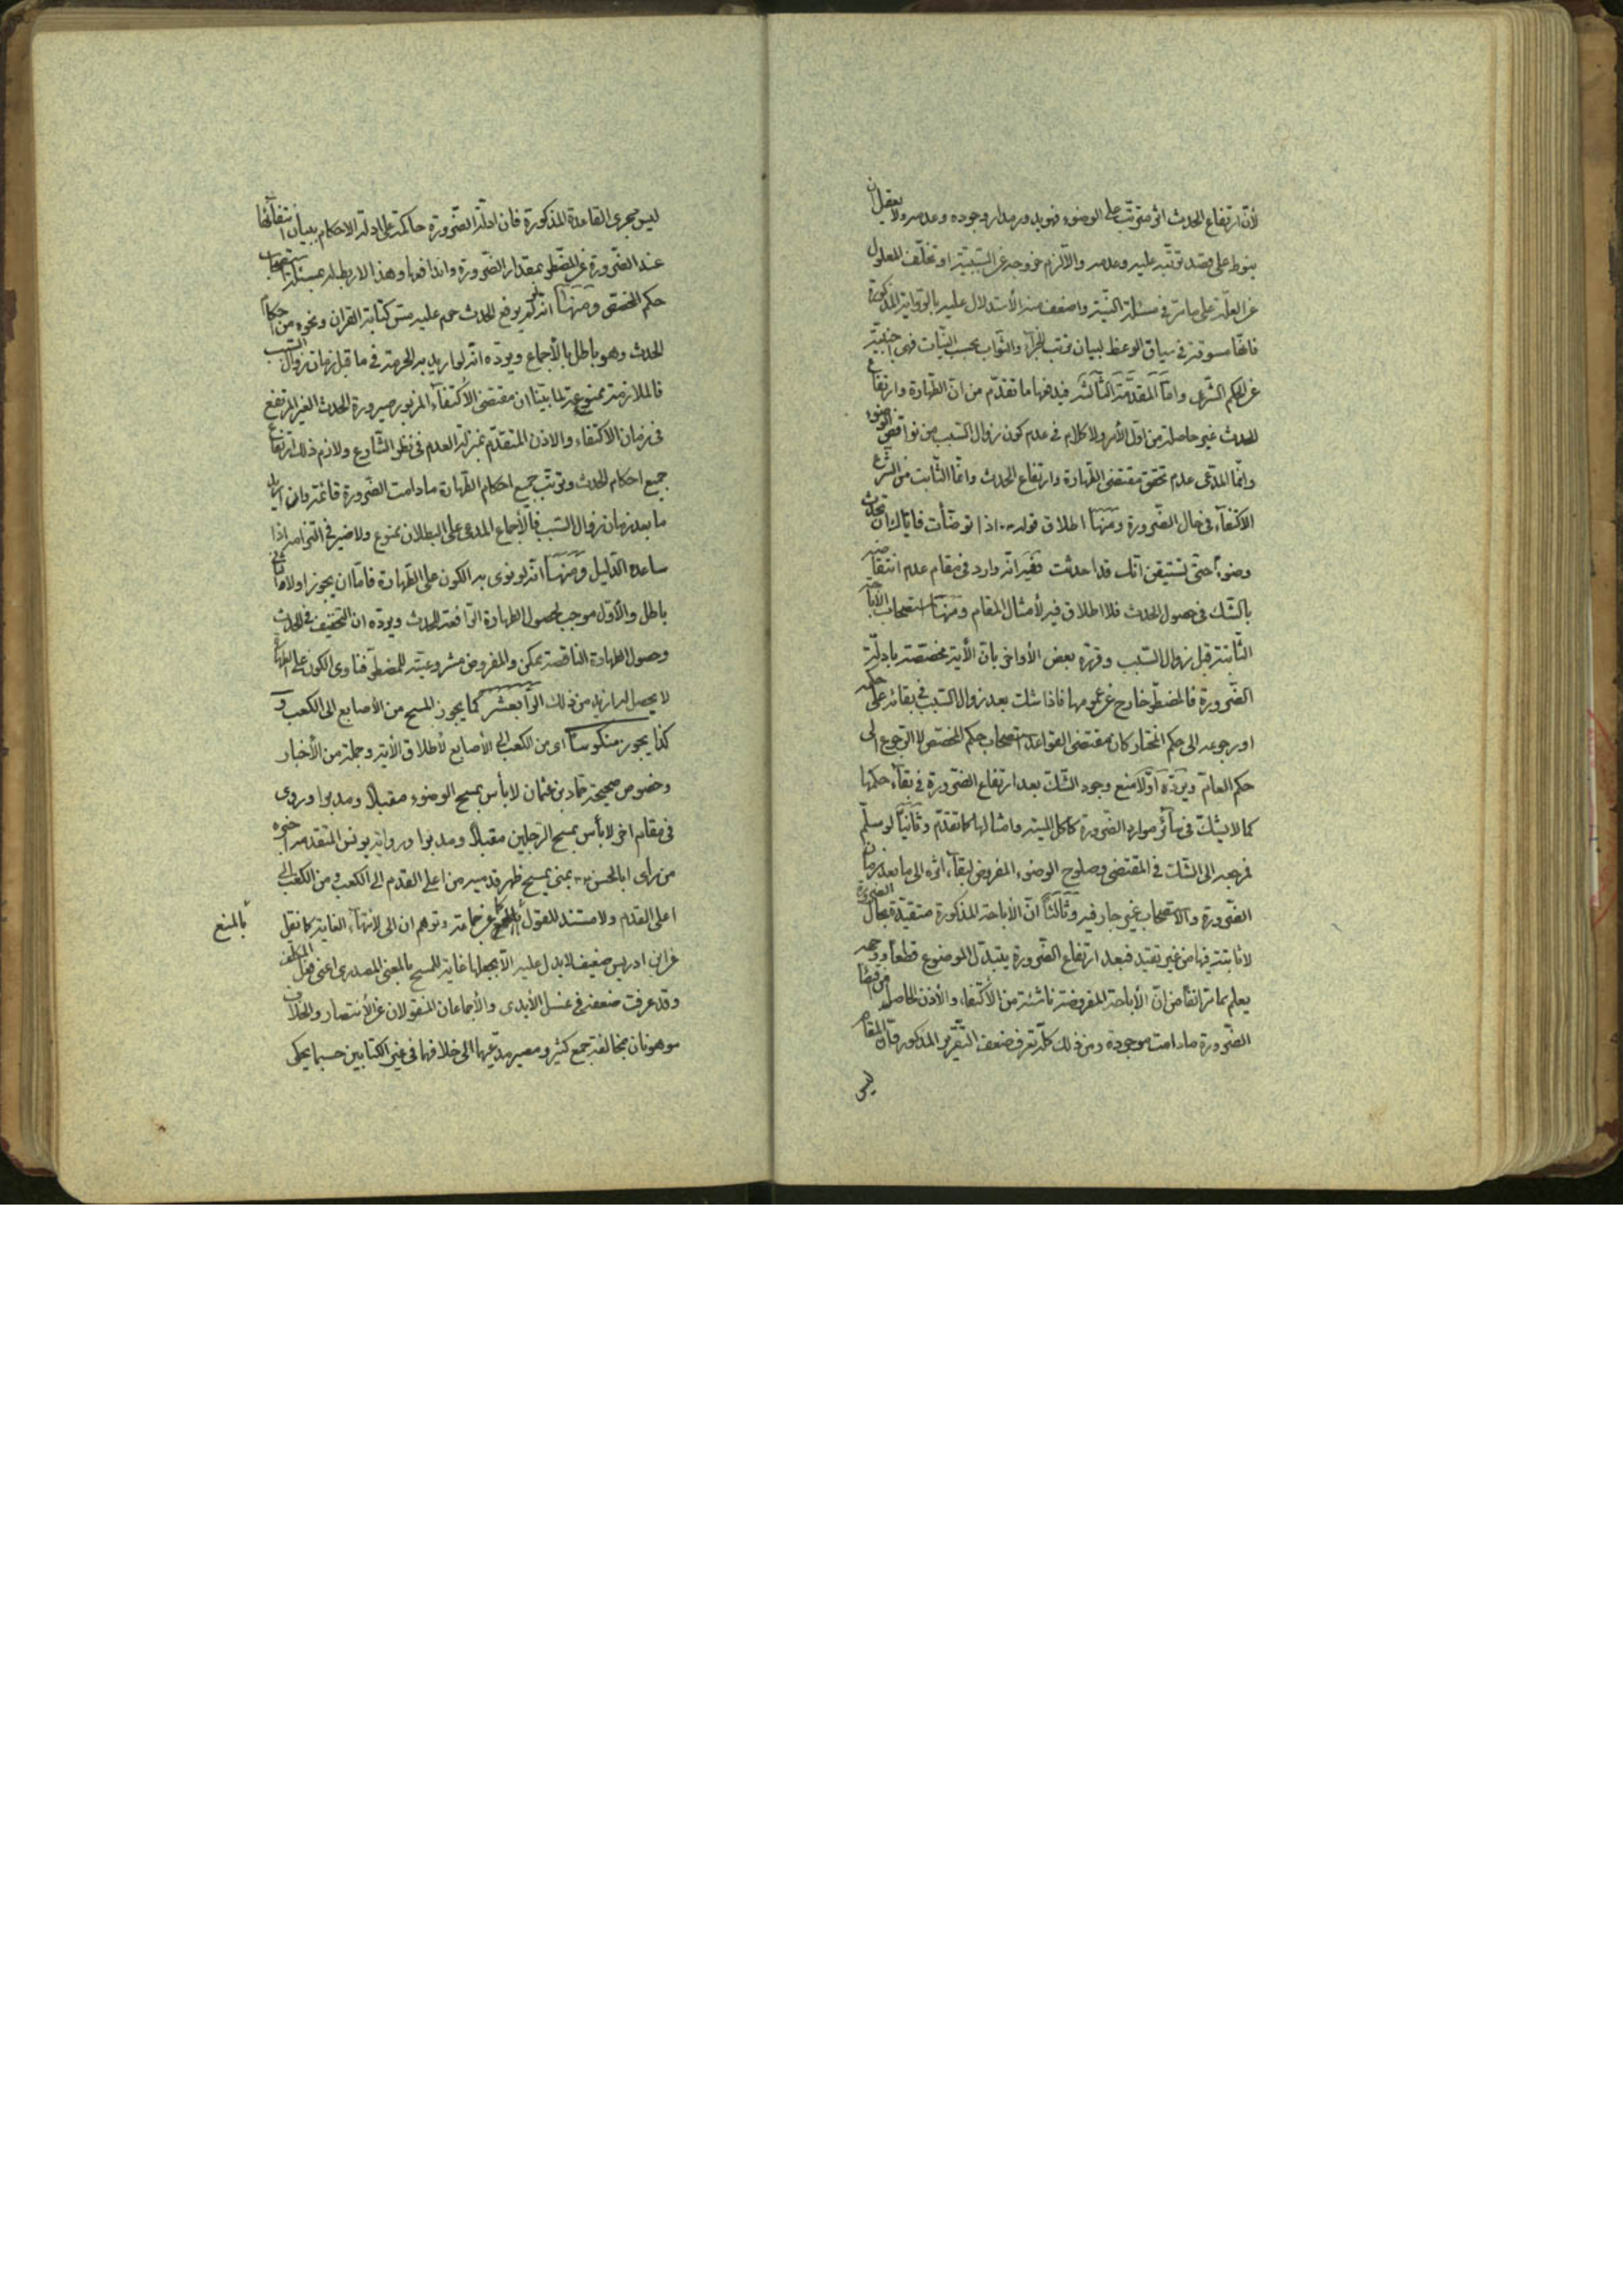 لأنّ ارتفاع الحدث اثر مترتّب على الوضوء فهو يدور مدار وجوده وعدمه ولا يعقل ان
ينوط على قصد ترتّبه عليه وعدمه والّا لزم خروجه عن السّببيّة او تخلّف المعلول
عن العلّة على ما مرّ في مسئلة النيّة واضعف منه الأستدلال عليه بالرّواية المذكورة
فانّها مسوقة في سياق الوعظ لبيان ترتب الجزآء والثّواب بحسب النيّات فهي اجنبيّة
عن الحكم الشّرعى وامّا المقدّمة الثّالثة فيدفعها ما تقدّم من انّ الطّهارة وارتفاع
الحدث غير حاصلة من اوّل الأمر ولا كلام في عدم كون زوال السّبب من نواقض الوضوء
وانّما المدّعى عدم تحقق مقتضى الطّهارة وارتفاع الحدث وانّما الثّابت من الشّرع
الاكتفآء في حال الضّرورة ومنها اطلاق قوله اذا توضّأت فايّاك ان تحدث
وضوءً حتّى تستيقن انّك قد احدثت ففيه انّه وارد في مقام عدم انتقاضه
بالشّك في حصول الحدث فلا اطلاق فيه لأمثال المقام ومنها استصحاب الأباحة
الثّابتة قبل زوال السّبب وقرّره بعض الأواخر بانّ الأية مختصّة بادلّة
الضّرورة فالمضطرّ خارج عن عمومها فاذا شك بعد زوال السّبب في بقائه على حكمه
او رجوعه الى حكم المختار كان مقتضى القواعد استصحاب حكم المخصّص لا الرّجوع الى
حكم العامّ ويردّه اوّلا منع وجود الشّك بعد ارتفاع الضّرورة في بقآء حكمها
كما لا يشكّ في سآئر موارد الضّرورة كاكل الميتة وامثالها كما تقدّم وثانياً لو سلّم
فمرجعه الى الشّك في المقتضى وصلوح الوضوء المفروض لبقآء اثره الى ما بعد زمان
الضّرورة والاستصحاب غير جار فيه وثالثاً انّ الأباحة المذكورة متقيّدة بحال الضّرورة
لا ثابتة فيها من غير تقييد فبعد ارتفاع الضّرورة يتبدّل الموضوع قطعاً ووجهه
يعلم بما مرّ انفاً من انّ الأباحة المفروضة ناشئة من الأكتفاء والأذن الحاصل من
الضّرورة ما دامت موجودة ومن ذلك كلّه تعرف ضعف التّقرير المذكور فانّ المقام
ليس
ليس مجرى القاعدة المذكورة فان ادلّة الضّرورة حاكمة على ادلّة الاحكام ببيان انتفآئها
عند الضّرورة عن المضطرّ بمقدار الضّرورة وهذا لا ربط له بمسئلة استصحاب
حكم المخصّص ومنها انّه لو لم يرفع الحدث حرم عليه مسّ كتابة القران ونحوه من احكام
الحدث وهو باطل بالأجماع ويردّه انّه لو اريد به الحرمة في ما قبل زمان زوال السّبب
فالملازمة ممنوعة لما بيّنا ان مقتضى الاكتفآء المزبور صيرورة الحدث الغير المرتفع
في زمان الاكتفاء والاذن المتقدّم بمنزلة العدم في نظر الشّارع ولازم ذلك ارتفاع
جميع احكام الحدث وترتّب جميع احكام الطّهارة ما دامت الضّرورة قائمة وان اريد
ما بعد زمان زوال السّبب فالأجماع المدعى على البطلان ممنوع ولا ضير في التزامه اذا
ساعده الدّليل ومنها انّه لو نوى به الكون على الطّهارة فامّا ان يجوز اولا والثّانى
باطل والأوّل موجب لحصول الطهارة الرّافعة للحدث ويردّه ان التخفيف في الحدث
وحصول الطهارة النّاقصة ممكن والمفروض مشروعيّته للمضطرّ فناوى الكون على الطهارة
لا يحصل له ازيد من ذلك الرّابعشر كما يجوز المسح من الأصابع الى الكعب
كذا يجوز منكوساً اى من الكعب الى الأصابع لأطلاق الأية وجملة من الأخبار
وخصوص صحيحة حمّاد بن عثمان لا بأس بمسح الوضوء مقبلاً ومدبرا وروى
في مقام اخر لا بأس بمسح الرّجلين مقبلاً ومدبرا ورواية يونس المتقدمة اخبره
من رأى ابا الحسن بمنى يمسح ظهر قدميه من اعلى القدم الى الكعب ومن الكعب الى
اعلى القدم ولا مستند للقول بالمنع عن جماعة وتوهم ان الى لانتهآء الغاية كما نقل
بالمنع
عن ابن ادريس ضعيف لا يدل عليه الّا بجعلها غاية للمسح بالمعنى المصدرى اعنى فعل المكلّف
وقد عرفت ضعفه في غسل الأيدى والأجماعان المنقولان عن الأنتصار والخلاف
موهونان بمخالفة جمع كثير ومصير مدّعيهما الى خلافها في غير الكتابين حسبما يحكى